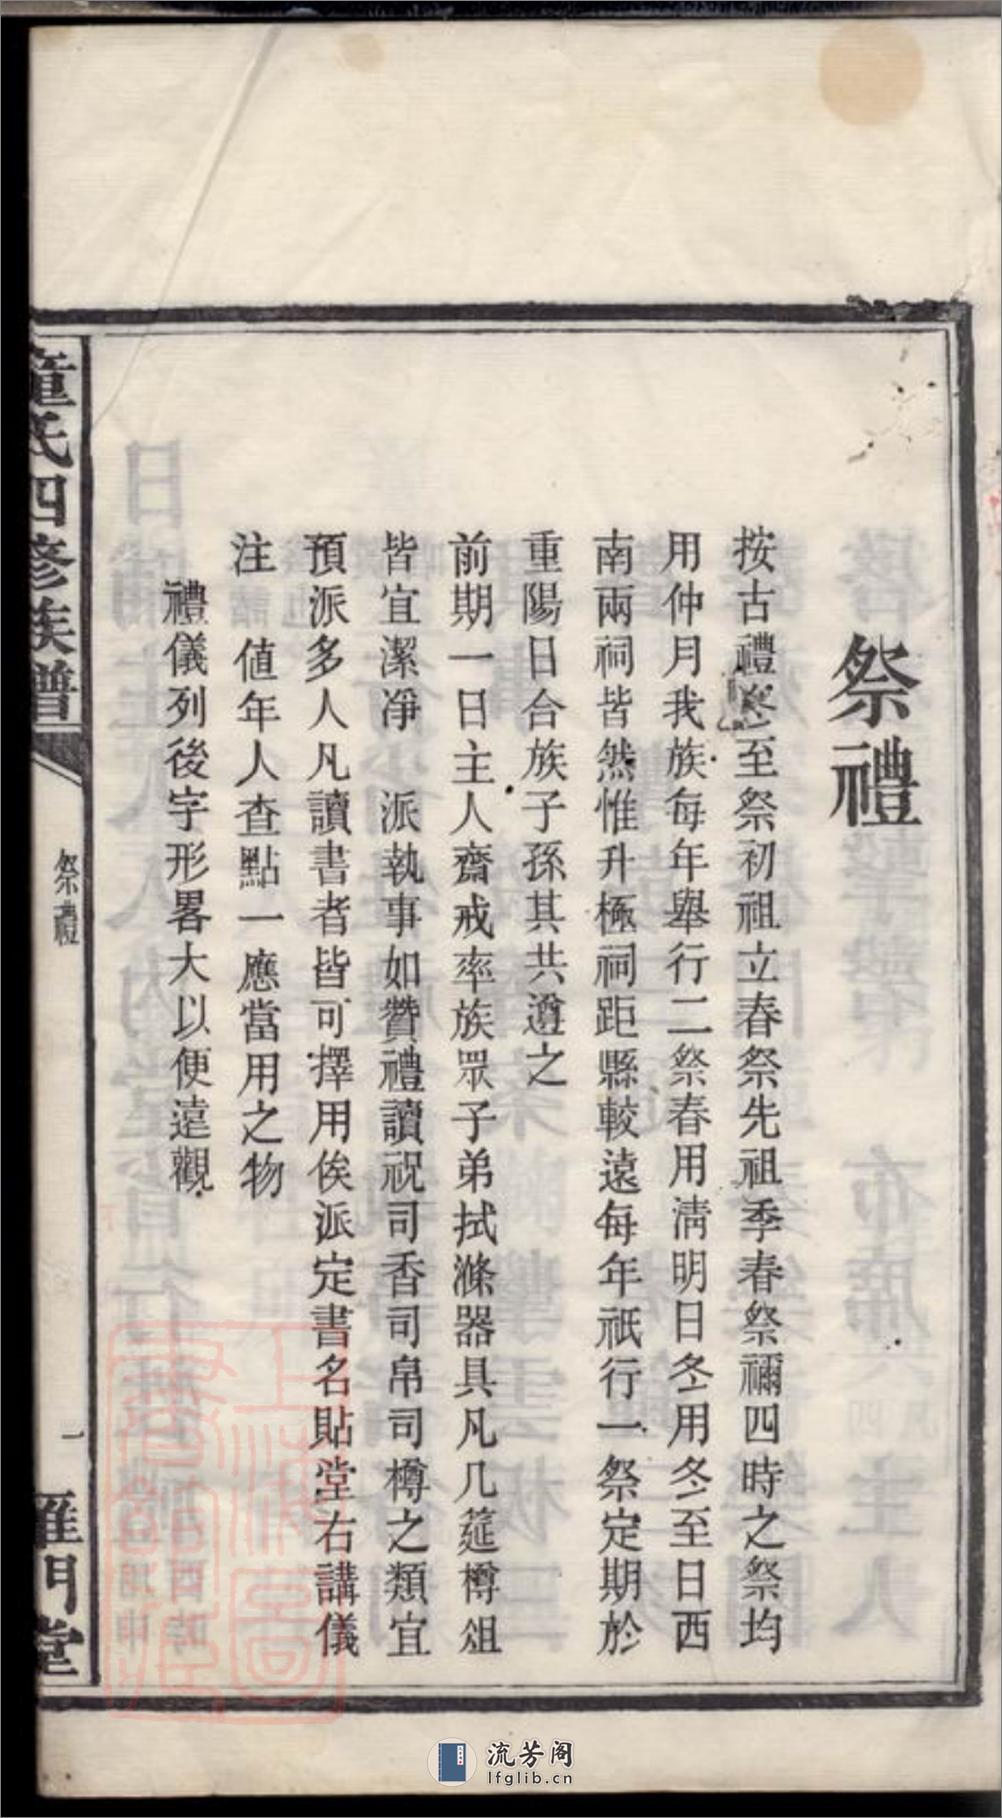 祭禮
按古禮冬至祭初祖立春祭先祖季春祭禰四時之祭均
用仲月我族每年舉行二祭春用淸明日冬用冬至日西
南兩祠皆然惟升極祠距縣較遠每年祇行一祭定期於
重陽日合族子孫其共遵之
前期一日主人齋戒率族眾子弟拭滌器具凡几筵樽俎
皆宜潔凈　派執事如贊禮讀祝司香司帛司樽之類宜
預派多人凡讀書者皆可擇用俟派定書名貼堂右講儀
注　値年人查點一應當用之物
禮儀列後字形畧大以便遠觀
童氏四修族譜
祭禮
一
雁門堂
流芳阁
lfglib.cn